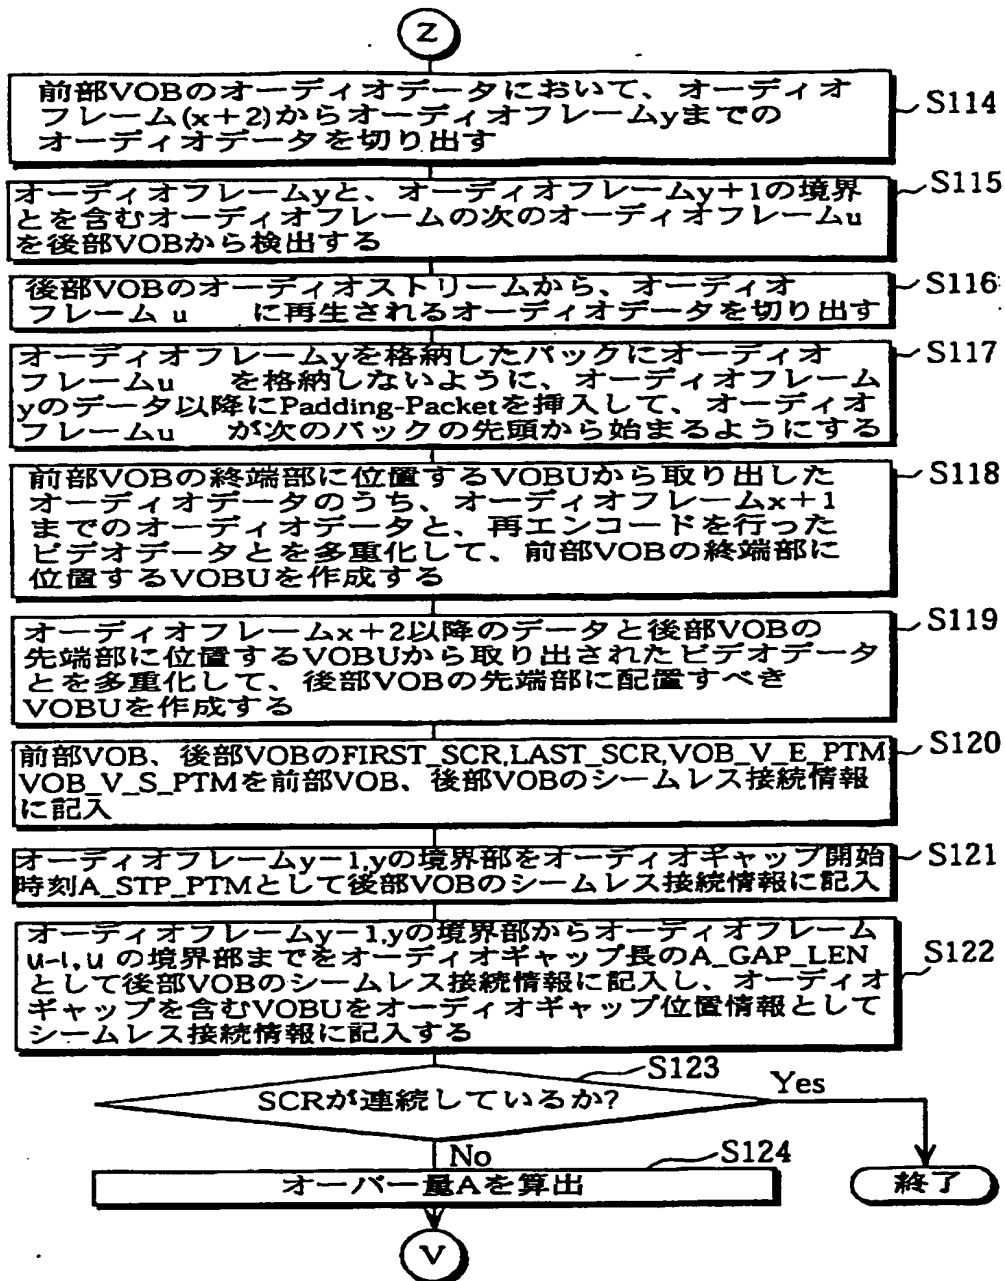 Z
前部VOBのオーディオデータにおいて、オーディオ
フレーム(x+2)からオーディオフレームyまでの
オーディオデータを切り出す
S114
オーディオフレームyと、オーディオフレームy+1の境界
とを含むオーディオフレームの次のオーディオフレームu
を後部VOBから検出する
S115
後部VOBのオーディオストリームから、オーディオ
フレーム u に再生されるオーディオデータを切り出す
S116
オーディオフレームyを格納したパックにオーディオ
フレームu を格納しないように、オーディオフレーム
yのデータ以降にPadding-Packetを挿入して、オーディオ
フレームu が次のパックの先頭から始まるようにする
S117
前部VOBの終端部に位置するVOBUから取り出した
オーディオデータのうち、オーディオフレームx+1
までのオーディオデータと、再エンコードを行った
ビデオデータとを多重化して、前部VOBの終端部に
位置するVOBUを作成する
S118
オーディオフレームx+2以降のデータと後部VOBの
先端部に位置するVOBUから取り出されたビデオデータ
とを多重化して、後部VOBの先端部に配置すべき
VOBUを作成する
S119
前部VOB、後部VOBのFIRST_SCR,LAST_SCR,VOB_V_E_PTM
VOB_V_S_PTMを前部VOB、後部VOBのシームレス接続情報
に記入
S120
オーディオフレームy-1,yの境界部をオーディオギャップ開始
時刻A_STP_PTMとして後部VOBのシームレス接続情報に記入
S121
オーディオフレームy-1,yの境界部からオーディオフレーム
u-1,u の境界部までをオーディオギャップ長のA_GAP_LEN
として後部VOBのシームレス接続情報に記入し、オーディオ
ギャップを含むVOBUをオーディオギャップ位置情報として
シームレス接続情報に記入する
S122
S123
SCRが連続しているか?
Yes
No
S124
オーバー量Aを算出
終了
V